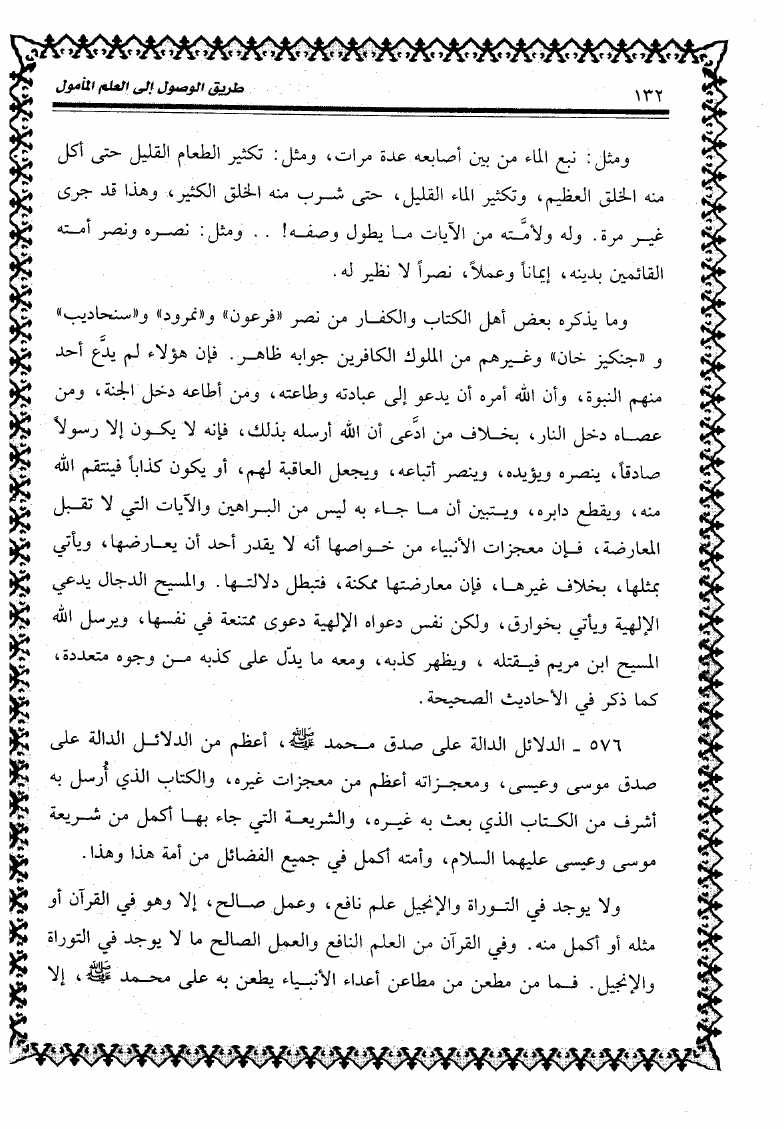 ١٣٢
طريق الوصول إلى العلم المأمول
ومثل: نبع الماء من بين أصابعه عدة مرات، ومثل: تكثير الطعام القليل حتى أكل
منه الخلق العظيم، وتكثير الماء القليل، حتى شرب منه الخلق الكثير، وهذا قد جرى
غير مرة. وله ولأمَّته من الآيات ما يطول وصفه! .. ومثل: نصره ونصر أمته
القائمين بدينه، إيماناً وعملاً، نصراً لا نظير له.
وما يذكره بعض أهل الكتاب والكفار من نصر «فرعون» و«نمرود» و«سنحاديب»
و «جنكيز خان» وغيرهم من الملوك الكافرين جوابه ظاهر. فإن هؤلاء لم يدَّع أحد
منهم النبوة، وأن الله أمره أن يدعو إلى عبادته وطاعته، ومن أطاعه دخل الجنة، ومن
عصاه دخل النار، بخلاف من ادَّعى أن الله أرسله بذلك، فإنه لا يكون إلا رسولاً
صادقاً، ينصره ويؤيده، وينصر أتباعه، ويجعل العاقبة لهم، أو يكون كذاباً فينتقم الله
منه، ويقطع دابره، ويتبين أن ما جاء به ليس من البراهين والآيات التي لا تقبل
المعارضة، فإن معجزات الأنبياء من خواصها أنه لا يقدر أحد أن يعارضها، ويأتي
بمثلها، بخلاف غيرها، فإن معارضتها ممكنة، فتبطل دلالتها. والمسيح الدجال يدعي
الإلهية ويأتي بخوارق، ولكن نفس دعواه الإلهية دعوى ممتنعة في نفسها، ويرسل الله
المسيح ابن مريم فيقتله ، ويظهر كذبه، ومعه ما يدّل على كذبه من وجوه متعددة،
كما ذكر في الأحاديث الصحيحة.
٥٧٦ ـ الدلائل الدالة على صدق محمد ﷺ، أعظم من الدلائل الدالة على
صدق موسى وعيسى، ومعجزاته أعظم من معجزات غيره، والكتاب الذي أُرسل به
أشرف من الكتاب الذي بعث به غيره، والشريعة التي جاء بها أكمل من شريعة
موسى وعيسى عليهما السلام، وأمته أكمل في جميع الفضائل من أمة هذا وهذا.
ولا يوجد في التوراة والإنجيل علم نافع، وعمل صالح، إلا وهو في القرآن أو
مثله أو أكمل منه. وفي القرآن من العلم النافع والعمل الصالح ما لا يوجد في التوراة
والإنجيل. فما من مطعن من مطاعن أعداء الأنبياء يطعن به على محمد ﷺ، إلا